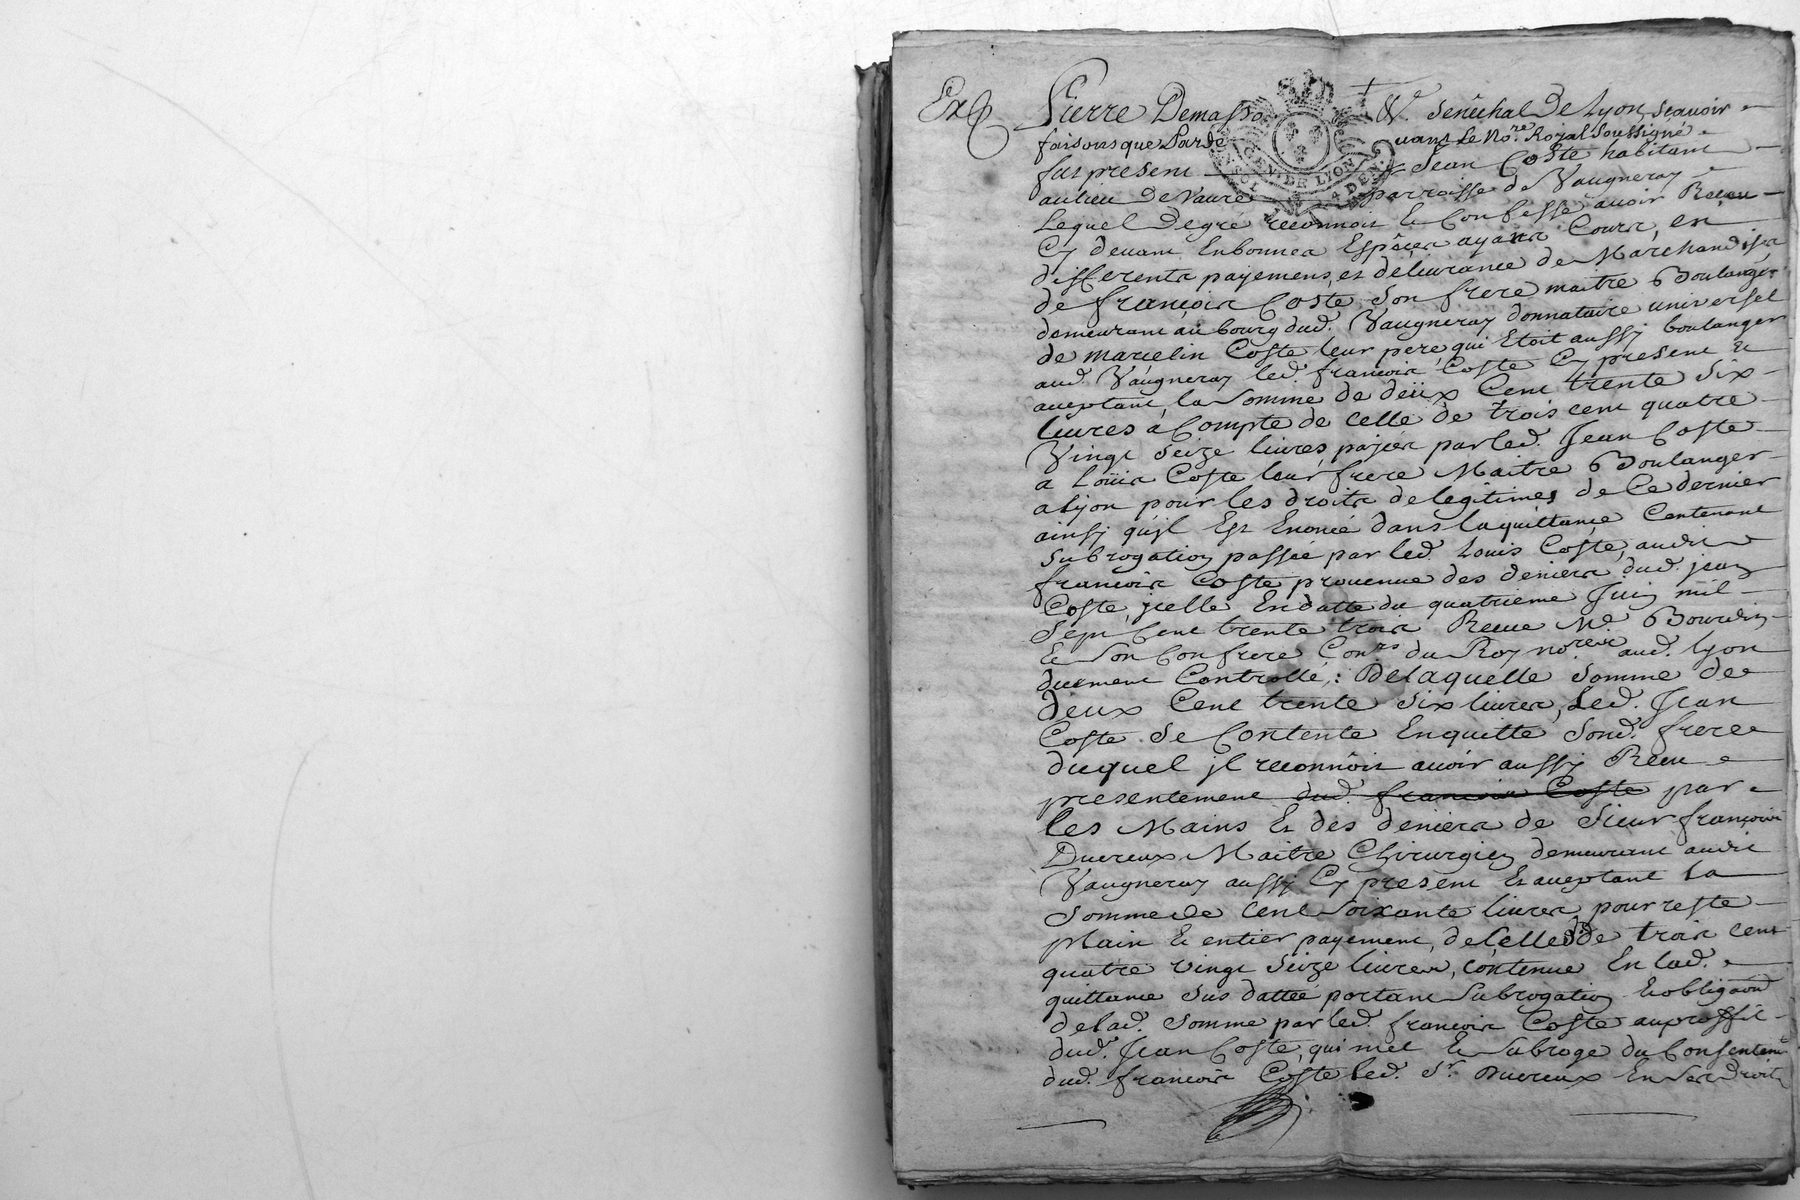 Exp
Pierre Demasso &c. Senechal De Lyon, scavoir
faisons que Parde vant Le No.re Royal Soussigné
fut present Sr Jean Coste habitant
au lieu De Vaure parroisse de Vaugneray
Lequel Degré reconnoit & Confesse avoir Receu
Cy devant En bonnes Espéces ayans Cours, en
differents payemens, et délivrance de Marchandises
de françois Coste Son frere maitre Boulanger
demeurant au bourg dud. Vaugneray donnataire universel
de marcelin Coste leur pere, qui Etoit aussy boulanger
aud. Vaugneray led. francois Coste Cy present &
aceptant, la Somme de deüx Cent trente Six
livres à Compte de Celle de trois cent quatre
Vingt Seize livres, payées par led. Jean Coste
a Loüis Coste leur frere Maitre Boulanger
a Lyon pour les droits de legitimes de Ce dernier
ainsy qu'jl Est Enoncé dans la quittance Contenant
Subrogation passée par led. Louis Coste, audit
francois Coste provenue des deniers dud. jean
Coste, jcelle En datte du quatrieme Juin mil
Sept Cent trente trois Receue Me. Bourdin
& Son Confrere Con.rs du Roy no.res aud. Lyon
duement Controllé,: De laquelle Somme de
deux Cent trente Six livres, led. Jean
Coste Se Contente Enquitte Sond. frere
duquel jl reconnoit avoir aussy Receu
presentement dud. francois Coste par
les Mains & des deniers de Sieur françois
Ducreux Maitre Chirurgien demeurant audit
Vaugneray aussy Cy present & aceptant la
Somme de Cent Soixante livres, pour reste
plain & entier payement, de Celle de trois cent
quatre vingt Seize livres, contenue En lad.
quittance Sus dattée portant Subrogation & obliga.on
de lad. Somme par led. francois Coste au proffit
dud. Jean Coste, qui met & Subroge du Consentem.t
dud. francois Coste led. Sr. Ducreux En Ses droits
GEN. DE LYON
SOL
4 DEN.